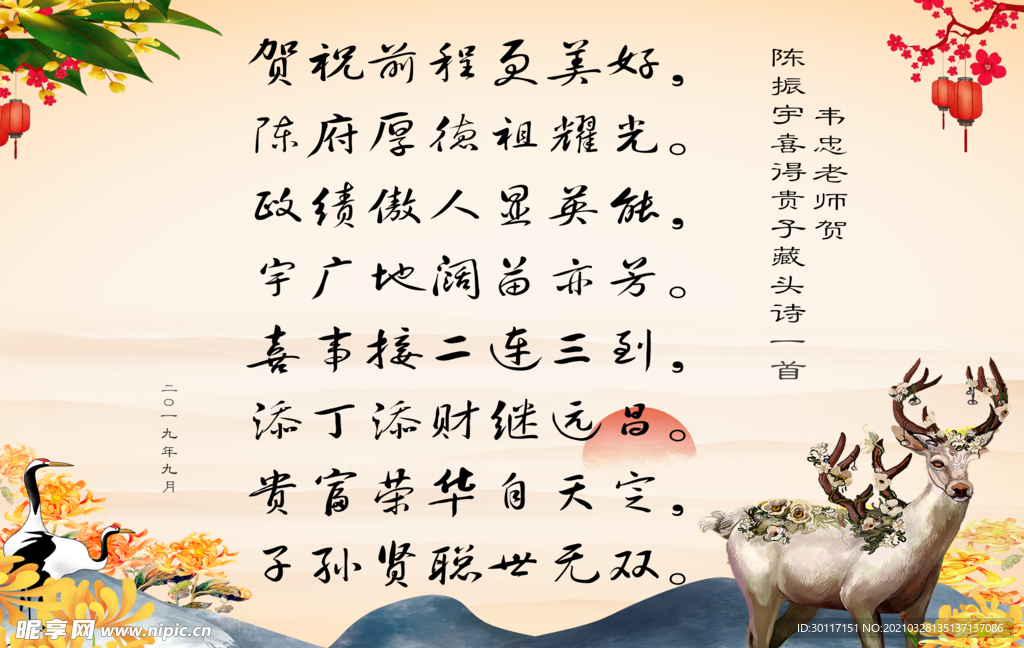 贺祝前程更美好，
陈府厚德祖耀光。
政绩傲人显英能，
宇广地阔苗亦芳。
喜事接二连三到，
添丁添财继远昌。
贵富荣华自天定，
子孙贤聪世无双。
陈振宇喜得贵子藏头诗一首
韦忠老师贺
二〇一九年九月
昵享网 www.nipic.cn
ID:30117151 NO:20210328135137137086